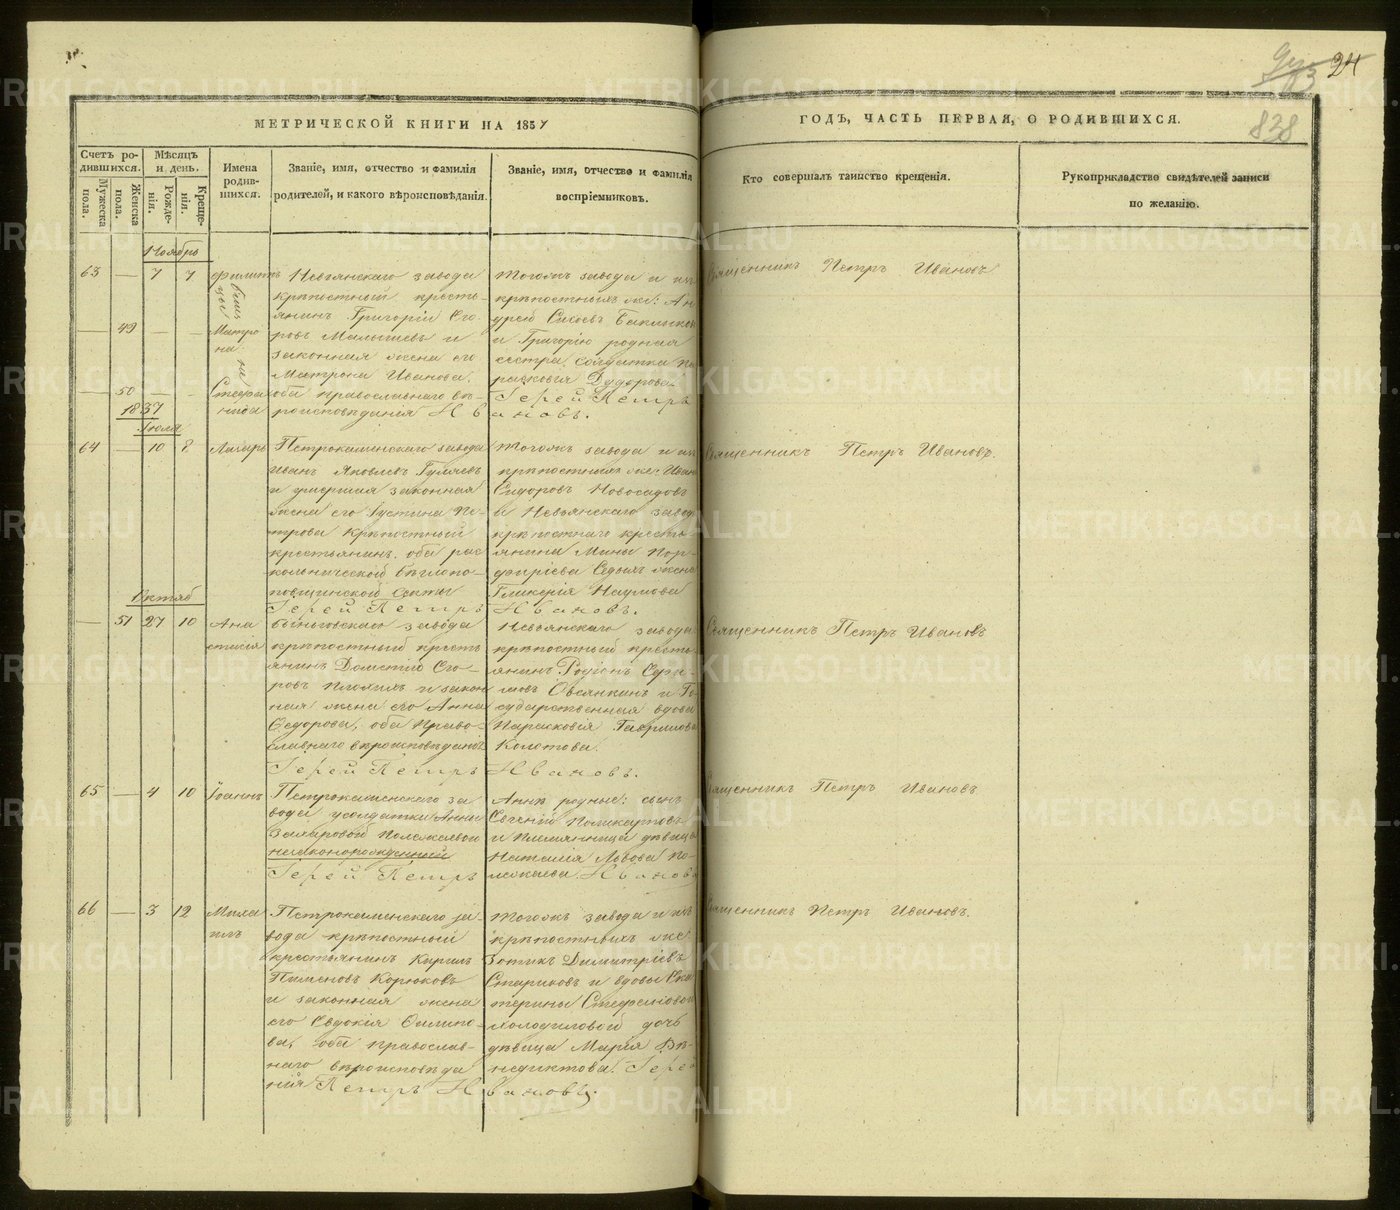 24
838
МЕТРИЧЕСКОЙ КНИГИ НА 1857
ГОДЪ, ЧАСТЬ ПЕРВАЯ, О РОДИВШИХСЯ.
Счетъ ро-
дившихся.
Мужеска
пола.
Женска
пола.
Мѣсяцъ
и день.
Рожде-
нія.
Креще-
нія.
Имена
родив-
шихся.
Званіе, имя, отчество и фамилія
родителей, и какого вѣроисповѣданія.
Званіе, имя, отчество и фамилія
воспріемниковъ.
Кто совершалъ таинство крещенія.
Рукоприкладство свидѣтелей записи
по желанію.
Ноябрь
63 — 7 7
— 49 — —
Матро
на
— 50 — —
Стефа
нида
Невьянскаго завода
крѣпостный кресть-
янинъ Григорій Его-
ровъ Малышевъ и
законная жена его
Матрона Иванова,
оба православнаго вѣ-
роисповѣданія
Тогожъ завода и ихъ
крѣпостныхъ же: Ан
дрей
и Григорію родная
сестра, солдатка Па
расковія Дудорова.
Іерей Петръ
Ивановъ.
Священникъ Петръ Ивановъ
1857
Іюля
64 — 10 8
Лазарь
Петрокаменскаго завода
Иванъ Яковлевъ Гуляевъ
и умершая законная
жена его Іустина Пе-
трова крѣпостный
крестьянинъ, оба рас
кольнической бѣглопо-
повщинской секты
Іерей Петръ Ивановъ.
Тогожъ завода и ихъ
крѣпостныхъ же: Иванъ
Сидоровъ Новосадовъ
и Невьянскаго завода
крѣпостнаго кресть-
янина Мины Пор-
фиріева Сѣдыхъ жена
Гликерія Наумова
Священникъ Петръ Ивановъ.
Октяб
— 51 27 10
Ана
стасія
Быньговскаго завода
крѣпостный кресть
янинъ Дометій Его-
ровъ Плохихъ и закон
ная жена его Анна
Ѳедорова, оба право-
славнаго вѣроисповѣданія
Іерей Петръ Ивановъ.
Невьянскаго завода
крѣпостный кресть-
янинъ Родіонъ
Овсянкинъ и Го
сударственная вдова
Парасковія Гаврилова
Колотова.
Священникъ Петръ Ивановъ
65 — 4 10
Іоаннъ
Петрокаменскаго за
вода у солдатки Анны
Захаровой Полежаевой
незаконорожденный
Іерей Петръ Ивановъ
Аннѣ родные: сынъ
Евгеній Поликарповъ
и племянница дѣвица
Наталія Львова По-
лежаева.
Священникъ Петръ Ивановъ
66 — 3 12
Миха
илъ
Петрокаменскаго за-
вода крѣпостный
крестьянинъ Кирилъ
Пименовъ Корюковъ
и законная жена
его Евдокія Филипо-
ва, оба православ-
наго вѣроисповѣда
нія Петръ Ивановъ.
Тогожъ завода и ихъ
крѣпостныхъ же
Зотикъ Димитріевъ
Стариковъ и вдовы Ека
терины Стефановой
Холодиловой дочь
дѣвица Марія Ве-
недиктова. Іерей
Священникъ Петръ Ивановъ.
METRIKI.GASO-URAL.RU